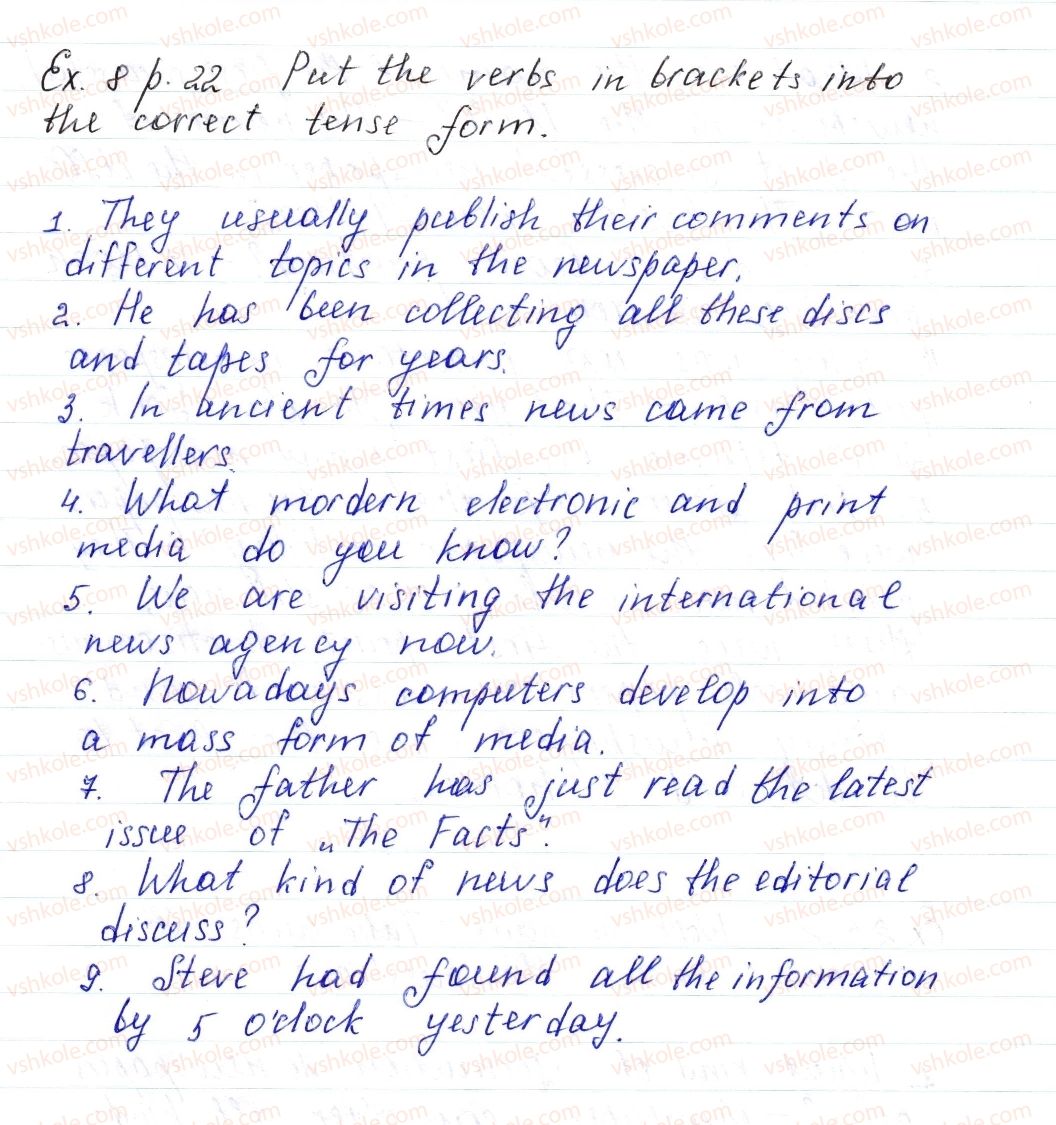 Ex. 8 p. 22 Put the verbs in brackets into
the correct tense form.
1. They usually publish their comments on
different topics in the newspaper.
2. He has been collecting all these discs
and tapes for years.
3. In ancient times news came from
travellers.
4. What mordern electronic and print
media do you know?
5. We are visiting the international
news agency now.
6. Nowadays computers develop into
a mass form of media.
7. The father has just read the latest
issue of „The Facts".
8. What kind of news does the editorial
discuss?
9. Steve had found all the information
by 5 o'clock yesterday.